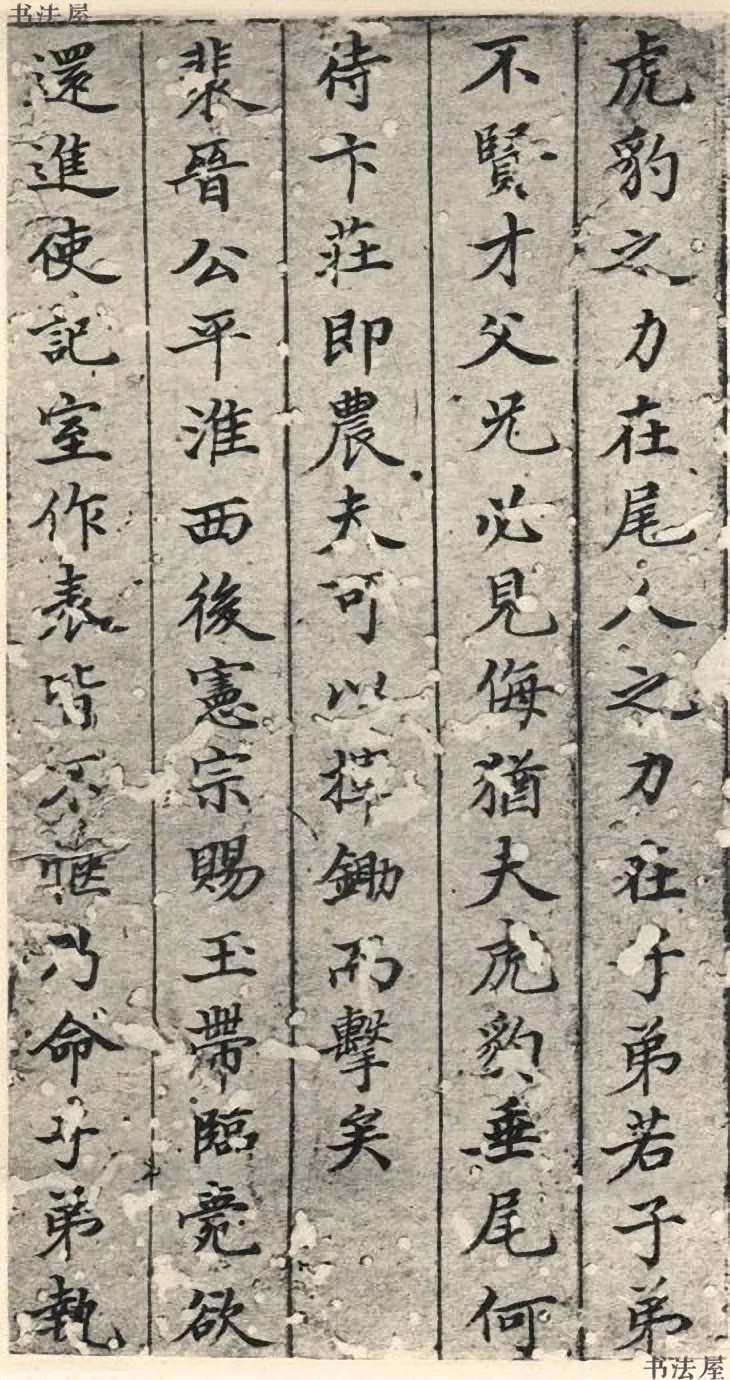 书法屋
虎豹之力在尾人之力在子弟若子弟
不賢才父兄必見侮猶夫虎豹垂尾何
待卞莊即農夫可以揮鋤而擊矣
裴晉公平淮西後憲宗賜玉帶臨薨欲
還進使記室作表皆不愜乃命子弟執
书法屋